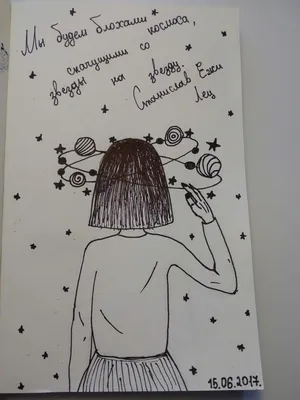 Мы будем блохами космоса,
скачущими со
звезды на звезду.
Станислав Ежи
Лец
15.06.2017.